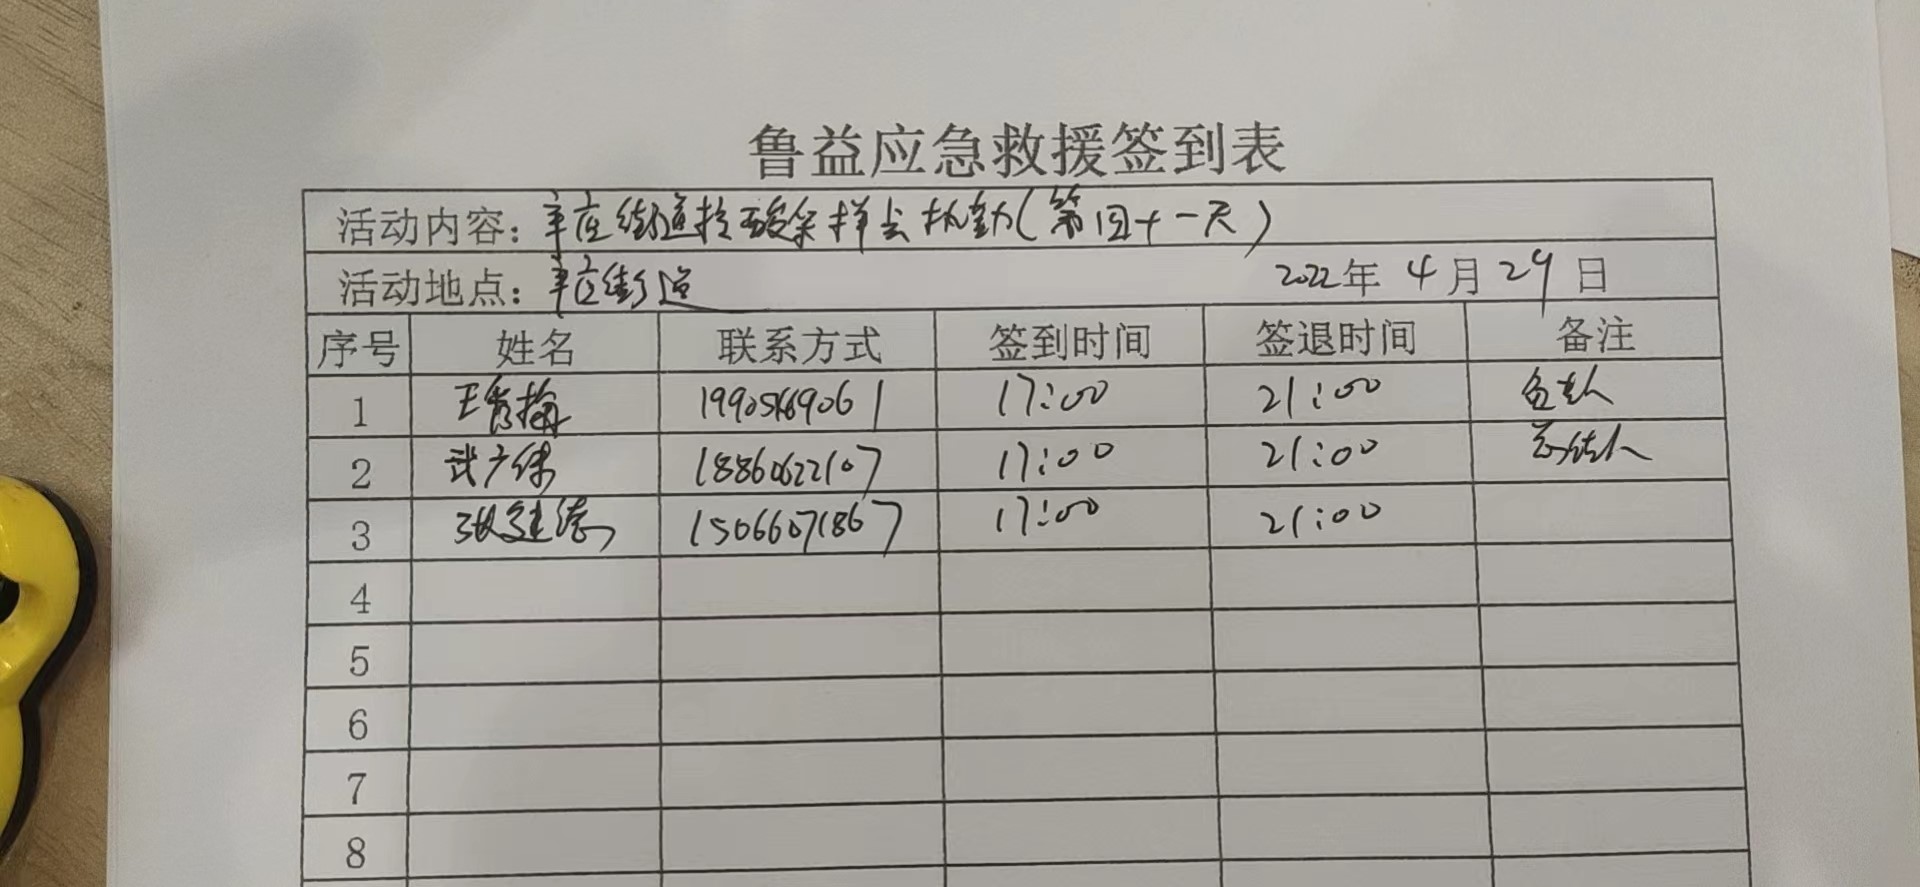 鲁益应急救援签到表
活动内容：辛庄街道核酸采样点执勤（第四十一天）
活动地点：辛庄街道 2022年 4月 29日
序号 姓名 联系方式 签到时间 签退时间 备注
1 王秀梅 19905469061 17:00 21:00 负责人
2 武广伟 18860622107 17:00 21:00
3 张建德 15066071867 17:00 21:00
4
5
6
7
8